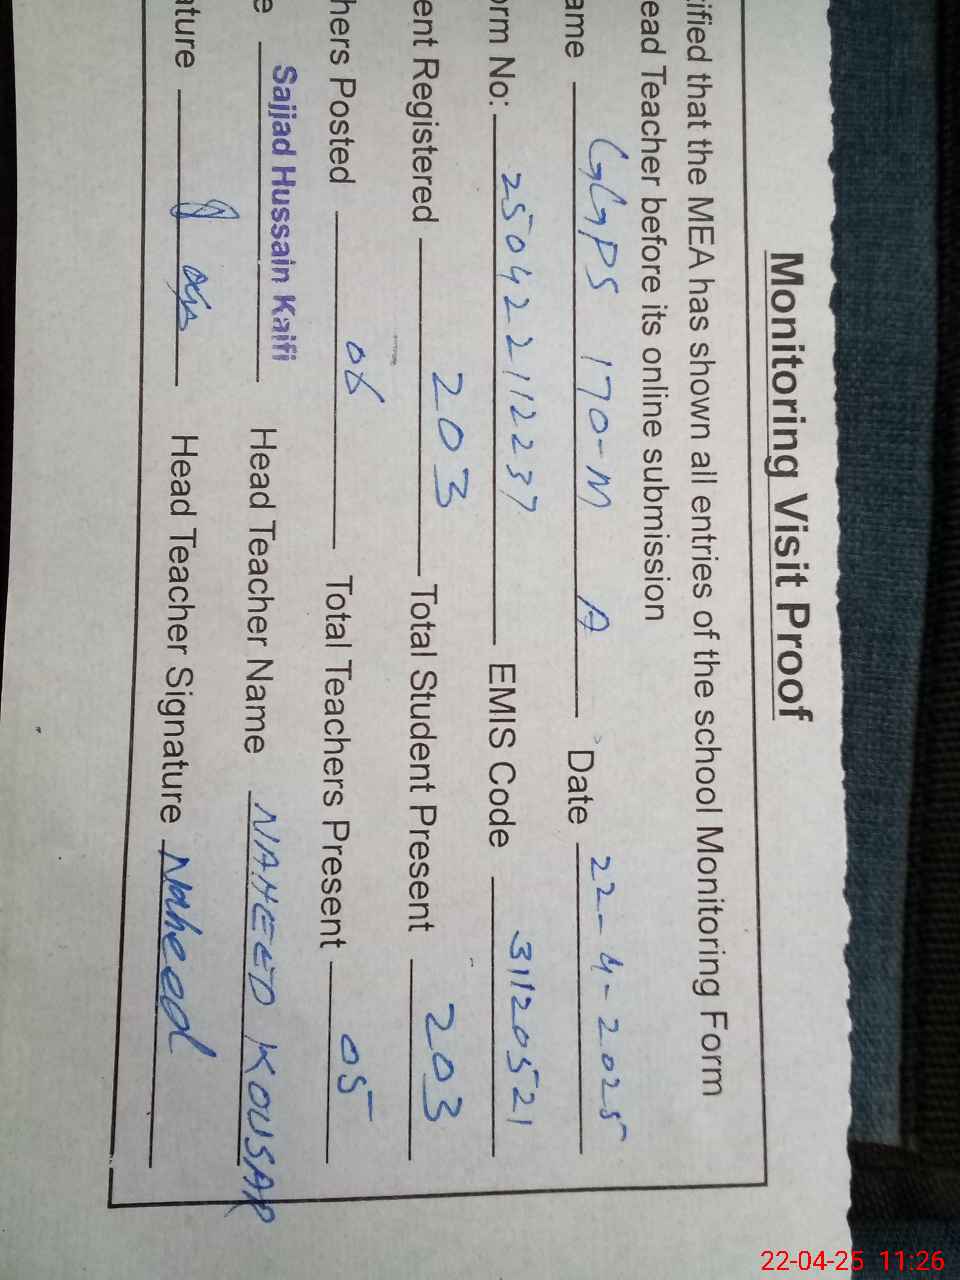 Monitoring Visit Proof
ified that the MEA has shown all entries of the school Monitoring Form
ead Teacher before its online submission
ame GGPS 170-M A Date 22-4-2025
orm No: 25042211237 EMIS Code 31120521
ent Registered 203 Total Student Present 203
hers Posted 06 Total Teachers Present 05
e Sajjad Hussain Kaifi Head Teacher Name NAHEED KOUSAR
ature Head Teacher Signature Naheed
22-04-25 11:26